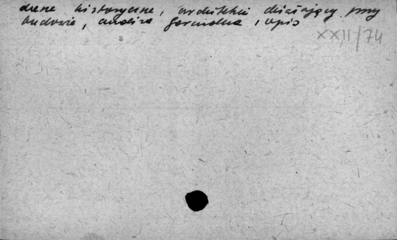 dane historyczne, architekci działający przy
budowie, analiza formalna, opis
XXII/74